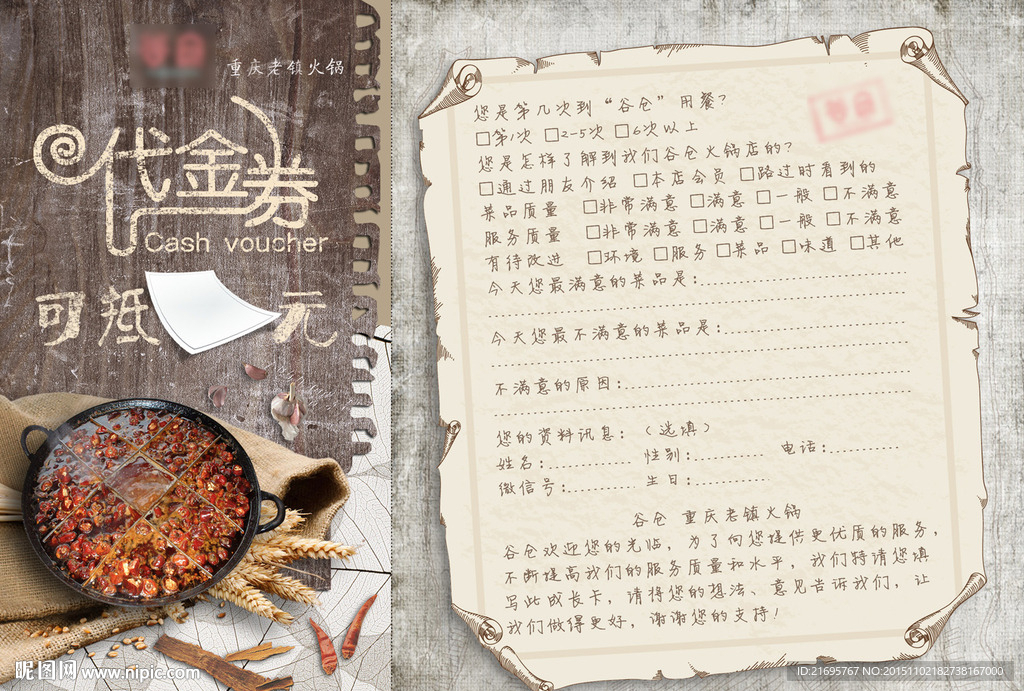 重庆老镇火锅
代金券
Cash voucher
可抵 元
您是第几次到“谷仓”用餐?
□第1次 □2-5次 □6次以上
您是怎样了解到我们谷仓火锅店的?
□通过朋友介绍 □本店会员 □路过时看到的
菜品质量 □非常满意 □满意 □一般 □不满意
服务质量 □非常满意 □满意 □一般 □不满意
有待改进 □环境 □服务 □菜品 □味道 □其他
今天您最满意的菜品是:
今天您最不满意的菜品是:
不满意的原因:
您的资料讯息:(选填)
姓名: 性别: 电话:
微信号: 生日:
谷仓 重庆老镇火锅
谷仓欢迎您的光临,为了向您提供更优质的服务,
不断提高我们的服务质量和水平,我们特请您填
写此成长卡,请将您的想法、意见告诉我们,让
我们做得更好,谢谢您的支持!
昵图网 www.nipic.com
ID:21695767 NO:20151102182738167000